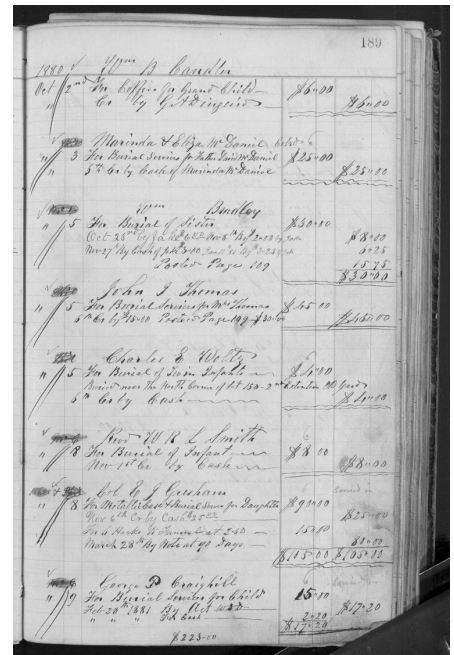 189
1880 Wm B Candler
Oct 2nd For Coffin for Grand Child $6.00
Cr by $6.00
Marinda & Eliza McDaniel
" 3 For Burial Services for McDaniel $25.00
" 5th Cr by Cash of Marinda McDaniel $25.00
Wm Bradley
" 5 For Burial of Sister $30.00
Oct 28th by Nov 8th By $8.00
Nov 27 By Cash 6.25
Posted Page 109 15.75
$30.00
John J Thomas
" 5 For Burial Services for Mrs Thomas $45.00
6th Cr by $15.00 Posted Page 109 $30.00 $45.00
Charles E Woltz
" 5 For Burial of Twin Infants $4.00
Buried near the North Corner of Lot 150 - 2nd Extention Old Yard
6th Cr by Cash $4.00
Revd W R L Smith
" 8 For Burial of Infant $8.00
Nov 1st Cr by Cash $8.00
Col C J Gresham
" 8 For Metallic Case & Burial Services for Daughter $90.00
Nov 6th Cr by Cash $25.00 $25.00
For 6 Hacks to Funeral at 2.50 15.00
March 28th By Note at 90 Days 80.00
$105.00 $105.00
George P Craighill
" 9 For Burial Services for Child 15.00
Feb 28th 1881 By Act $17.20
" " " For Cash 2.20
$17.20
$223.00